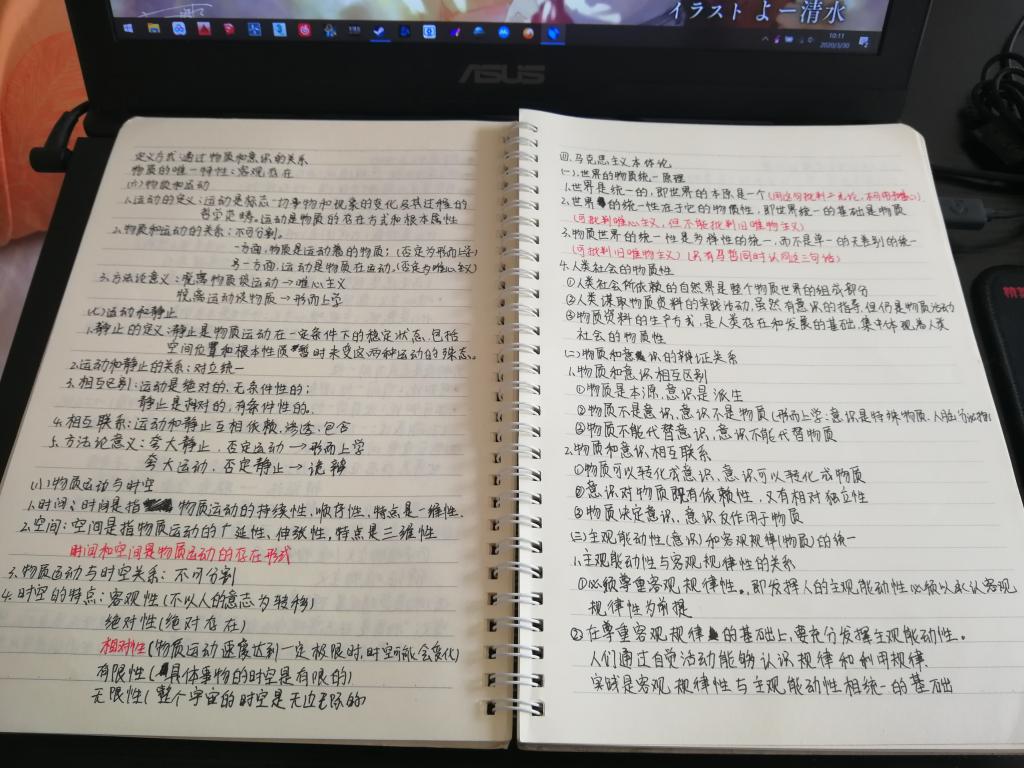 イラスト よー清水
10:11
2020/3/30
ASUS
定义方式:通过物质和意识的关系
物质的唯一特性:客观存在
(六)物质和运动
1.运动的定义:运动是标志一切事物和现象的变化及其过程的
哲学范畴。运动是物质的存在方式和根本属性
2.物质和运动的关系:不可分割。
一方面,物质是运动着的物质;(否定为形而上学)
另一方面,运动是物质在运动,(否定为唯心主义)
3.方法论意义:脱离物质谈运动→唯心主义
脱离运动谈物质→形而上学
(七)运动和静止
1.静止的定义:静止是物质运动在一定条件下的稳定状态,包括
空间位置和根本性质暂时未变这两种运动的殊态。
2.运动和静止的关系:对立统一
3.相互区别:运动是绝对的、无条件性的;
静止是相对的,有条件性的。
4.相互联系:运动和静止互相依赖、渗透、包含
5.方法论意义:夸大静止,否定运动→形而上学
夸大运动,否定静止→诡辩
(八)物质运动与时空
1.时间:时间是指物质运动的持续性、顺序性,特点是一维性.
2.空间:空间是指物质运动的广延性、伸张性,特点是三维性
时间和空间是物质运动的存在形式
3.物质运动与时空关系:不可分割
4.时空的特点:客观性(不以人的意志为转移)
绝对性(绝对存在)
相对性(物质运动速度达到一定极限时,时空可能会变化)
有限性(具体事物的时空是有限的)
无限性(整个宇宙的时空是无边无际的)
四.马克思主义本体论
(一).世界的物质统一原理
1.世界是统一的,即世界的本原是一个(用这句批判二元论,不可用于唯心)
2.世界的统一性在于它的物质性,即世界统一的基础是物质
(可批判唯心主义,但不能批判旧唯物主义)
3.物质世界的统一性是多样性的统一,而不是单一的无差别的统一
(可批判旧唯物主义)(只有马哲同时认同这三句话)
4.人类社会的物质性
①人类社会所依赖的自然界是整个物质世界的组成部分
②人类谋取物质资料的实践活动,虽然有意识的指导,但仍是物质活动
③物质资料的生产方式,是人类存在和发展的基础,集中体现着人类
社会的物质性
(二)物质和意识的辩证关系
1.物质和意识相互区别
①物质是本源,意识是派生
②物质不是意识,意识不是物质(形而上学:意识是特殊物质,人脑分泌物)
③物质不能代替意识,意识不能代替物质
2.物质和意识相互联系
①物质可以转化成意识,意识可以转化成物质
②意识对物质既有依赖性,又有相对独立性
③物质决定意识,意识反作用于物质
(三)主观能动性(意识)和客观规律(物质)的统一
1.主观能动性与客观规律性的关系
①必须尊重客观规律性。即发挥人的主观能动性必须以承认客观
规律性为前提
②在尊重客观规律的基础上,要充分发挥主观能动性。
人们通过自觉活动能够认识规律和利用规律.
实践是客观规律性与主观能动性相统一的基础